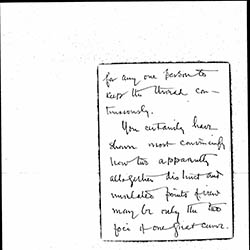 for any one person to
keep the thread con-
tinuously.
You certainly have
shown most convincingly
how two apparently
altogether distinct and
unrelated points of view
may be only the two
foci of one great curve.